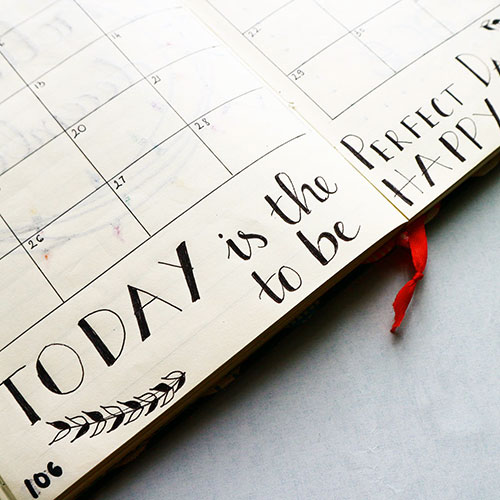 13 14
20 21 22
26 27 28 29
TODAY is the PERFECT DA
to be HAPPY
106